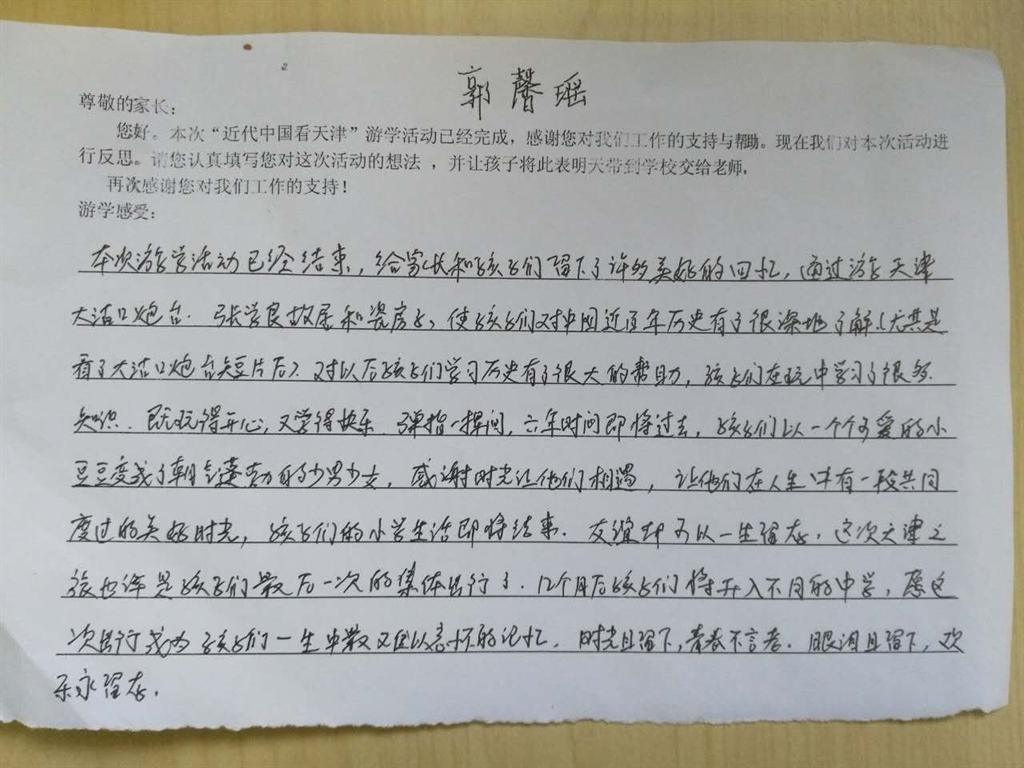 郭馨瑶
尊敬的家长：
您好。本次“近代中国看天津”游学活动已经完成，感谢您对我们工作的支持与帮助。现在我们对本次活动进
行反思。请您认真填写您对这次活动的想法，并让孩子将此表明天带到学校交给老师，
再次感谢您对我们工作的支持！
游学感受：
本次游学活动已经结束，给家长和孩子们留下了许多美好的回忆，通过游天津
大沽口炮台．张学良故居和瓷房子，使孩子们对中国近百年历史有了很深地了解（尤其是
看了大沽口炮台短片后）．对以后孩子们学习历史有了很大的帮助，孩子们在玩中学习了很多
知识．既玩得开心，又学得快乐．弹指一挥间，六年时间即将过去，孩子们以一个个可爱的小
豆豆变成了朝气蓬勃的少男少女，感谢时光让他们相遇，让他们在人生中有一段共同
度过的美好时光，孩子们的小学生活即将结束．友谊却可以一生留存．这次天津之
旅也许是孩子们最后一次的集体出行了．几个月后孩子们将升入不同的中学，愿这
次出行成为孩子们一生中最值以忘怀的记忆．时光且留下，青春不言老．眼泪且留下，欢
乐永留存．